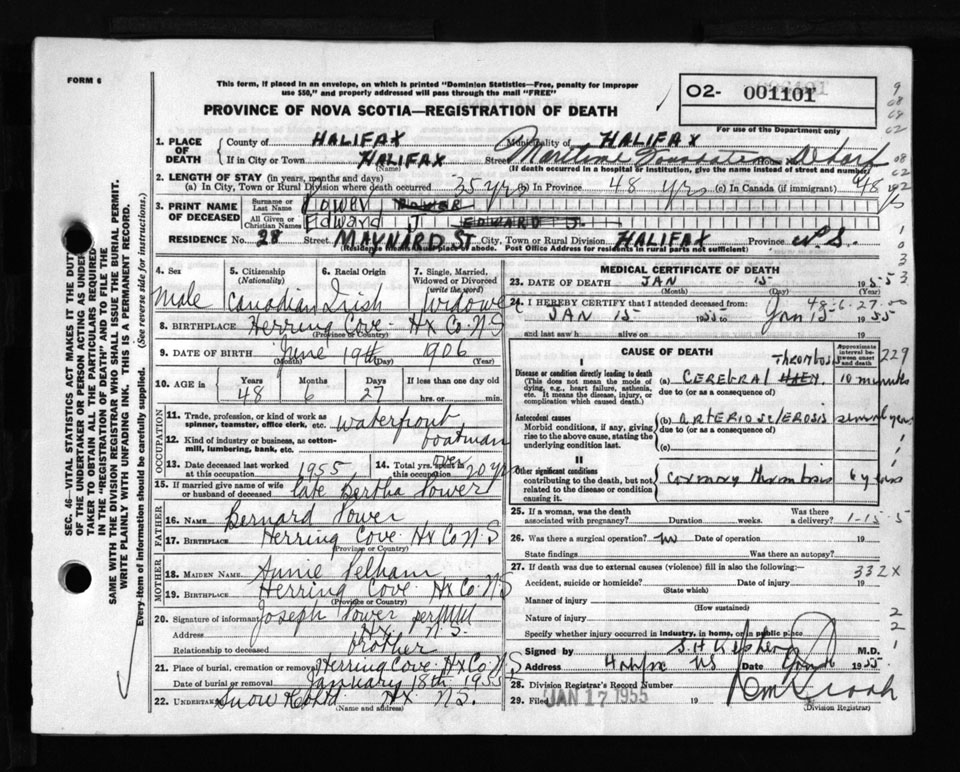 FORM 6
This form, if placed in an envelope, on which is printed "Dominion Statistics—Free, penalty for improper
use $50," and properly addressed will pass through the mail "FREE"
PROVINCE OF NOVA SCOTIA—REGISTRATION OF DEATH
O2- 001101
For use of the Department only
SEC. 46—VITAL STATISTICS ACT MAKES IT THE DUTY
OF THE UNDERTAKER OR PERSON ACTING AS UNDER-
TAKER TO OBTAIN ALL THE PARTICULARS REQUIRED
IN THE "REGISTRATION OF DEATH" AND TO FILE THE
SAME WITH THE DIVISION REGISTRAR WHO SHALL ISSUE THE BURIAL PERMIT.
WRITE PLAINLY WITH UNFADING INK. THIS IS A PERMANENT RECORD.
Every item of information should be carefully supplied. (See reverse side for instructions.)
1. PLACE OF DEATH County of HALIFAX Municipality of HALIFAX
If in City or Town HALIFAX (Name) Street Maritime Wharf
(If death occurred in a hospital or institution, give the name instead of street and number)
2. LENGTH OF STAY (in years, months and days)
(a) In City, Town or Rural Division where death occurred 35 yrs (b) In Province 48 yrs (c) In Canada (if immigrant) 48
3. PRINT NAME OF DECEASED Surname or Last Name Power
All Given or Christian Names Edward J. EDWARD J.
RESIDENCE No. 28 Street MAYNARD ST City, Town or Rural Division HALIFAX Province N.S.
(Residence means place of abode. Post Office Address for residents in rural parts not sufficient)
4. Sex Male
5. Citizenship (Nationality) Canadian
6. Racial Origin Irish
7. Single, Married, Widowed or Divorced (write the word) Widowed
8. BIRTHPLACE Herring Cove Hx Co. N S
(Province or Country)
9. DATE OF BIRTH June 19th 1906
(Month) (Day) (Year)
10. AGE in Years 48 Months 6 Days 27 If less than one day old hrs. or min.
OCCUPATION
11. Trade, profession, or kind of work as spinner, teamster, office clerk, etc. waterfront
12. Kind of industry or business, as cotton-mill, lumbering, bank, etc. boatman
13. Date deceased last worked at this occupation 1955
14. Total yrs. spent in this occupation over 20 yrs
15. If married give name of wife or husband of deceased late Bertha Power
FATHER
16. NAME Bernard Power
17. BIRTHPLACE Herring Cove Hx Co N S
(Province or Country)
MOTHER
18. MAIDEN NAME Annie Pelham
19. BIRTHPLACE Herring Cove Hx Co N S
(Province or Country)
20. Signature of informant Joseph Power per
Address Hx N.S.
Relationship to deceased brother
21. Place of burial, cremation or removal Herring Cove Hx Co N S
Date of burial or removal January 18th 1955
22. Undertaker Snow & Co Ltd Hx N.S.
(Name and address)
MEDICAL CERTIFICATE OF DEATH
23. DATE OF DEATH JAN 15 1955
(Month) (Day) (Year)
24. I HEREBY CERTIFY that I attended deceased from:
JAN 15 1955 to Jan 15 1955
48-6-27-00
and last saw h alive on 19
CAUSE OF DEATH
Approximate interval between onset and death
I
Disease or condition directly leading to death
(This does not mean the mode of dying, e.g., heart failure, asthenia, etc. It means the disease, injury, or complication which caused death.)
(a) CEREBRAL HAEM. Thrombosis 10 minutes
due to (or as a consequence of)
Antecedent causes
Morbid conditions, if any, giving rise to the above cause, stating the underlying condition last.
(b) ARTERIOSCLEROSIS several years
due to (or as a consequence of)
(c)
II
Other significant conditions
contributing to the death, but not related to the disease or condition causing it.
Coronary thrombosis 6 years
25. If a woman, was the death associated with pregnancy? Duration weeks. Was there a delivery?
1-15-5
26. Was there a surgical operation? no Date of operation 19
State findings Was there an autopsy?
27. If death was due to external causes (violence) fill in also the following:—
332X
Accident, suicide or homicide? Date of injury 19
(State which)
Manner of injury
(How sustained)
Nature of injury
Specify whether injury occurred in industry, in home, or in public place
Signed by M.D.
Address Halifax NS Date 1955
28. Division Registrar's Record Number
29. Filed JAN 17 1955 19
(Division Registrar)